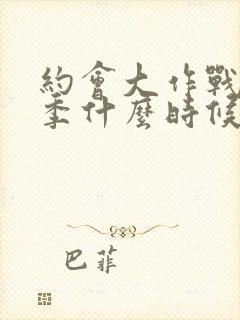 約會大作戰
季什麼時候
巴菲